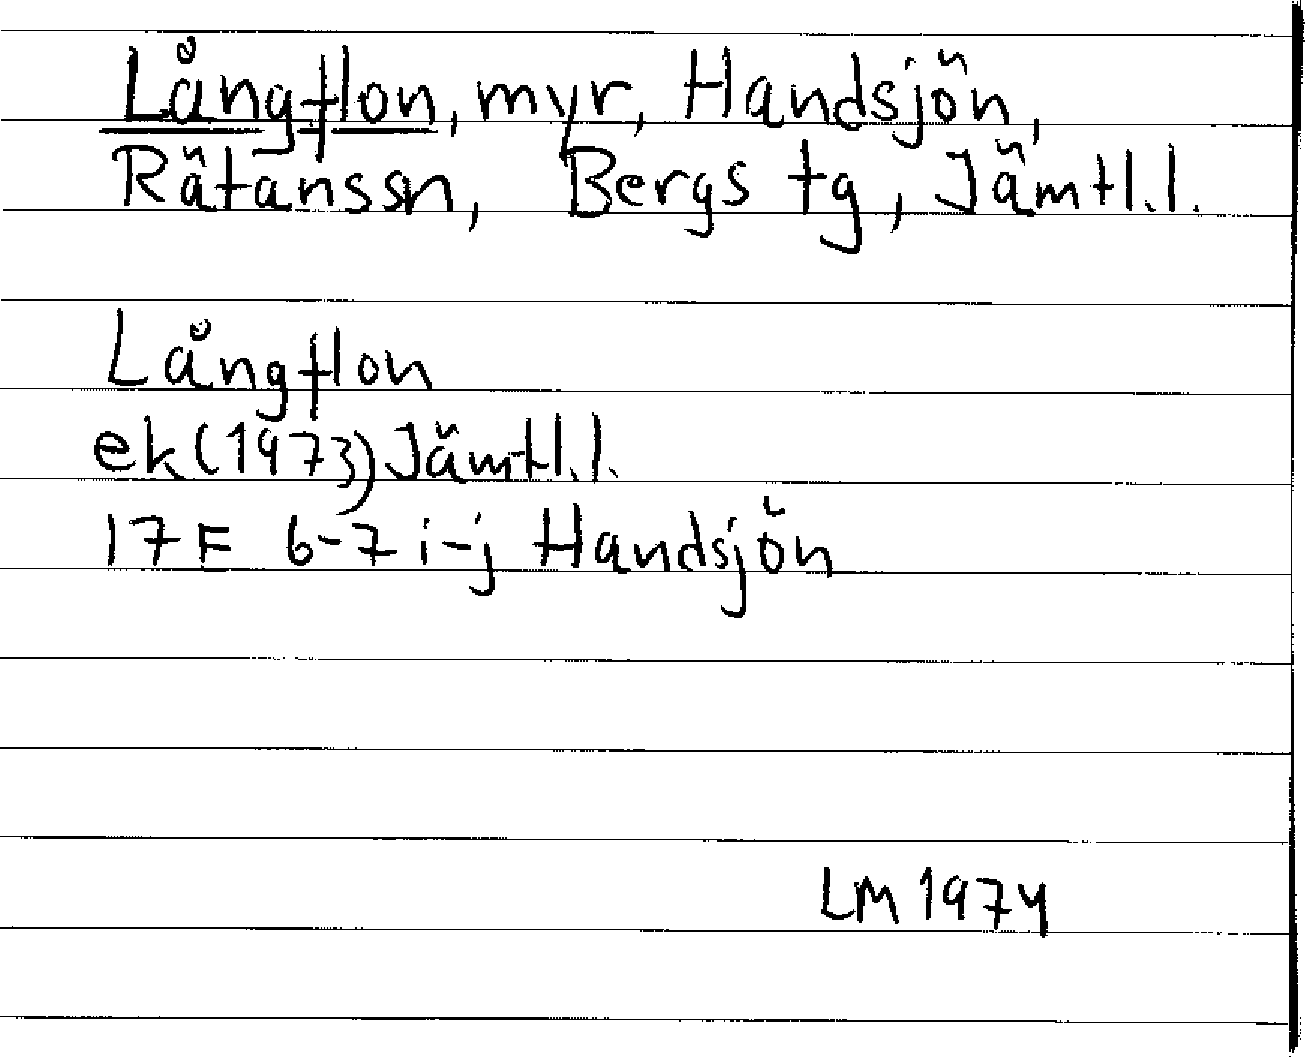 Långflon, myr, Handsjön,
Rätanssn, Bergs tg, Jämtl.l.
Långflon
ek(1973) Jämtl.l.
17E 6-7 i-j Handsjön
LM 1974